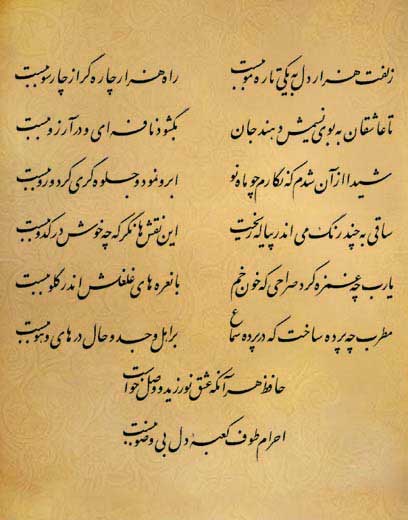 زلفت هزار دل به یکی تاره مو ببست راه هزار چاره گر از چار سو ببست
تا عاشقان به بوی نسیمش دهند جان بگشود نافه‌ای و در آرزو ببست
شیدا از آن شدم که نگارم چو ماه نو ابرو نمود و جلوه گری کرد و رو ببست
ساقی به چند رنگ می اندر پیاله ریخت این نقش‌ها نگر که چه خوش در کدو ببست
یا رب چه غمزه کرد صراحی که خون خم با نعره‌های غلغلش اندر گلو ببست
مطرب چه پرده ساخت که در پرده سماع بر اهل وجد و حال در های و هو ببست
حافظ هر آنکه عشق نورزید و وصل خواست
احرام طوف کعبه دل بی وضو ببست